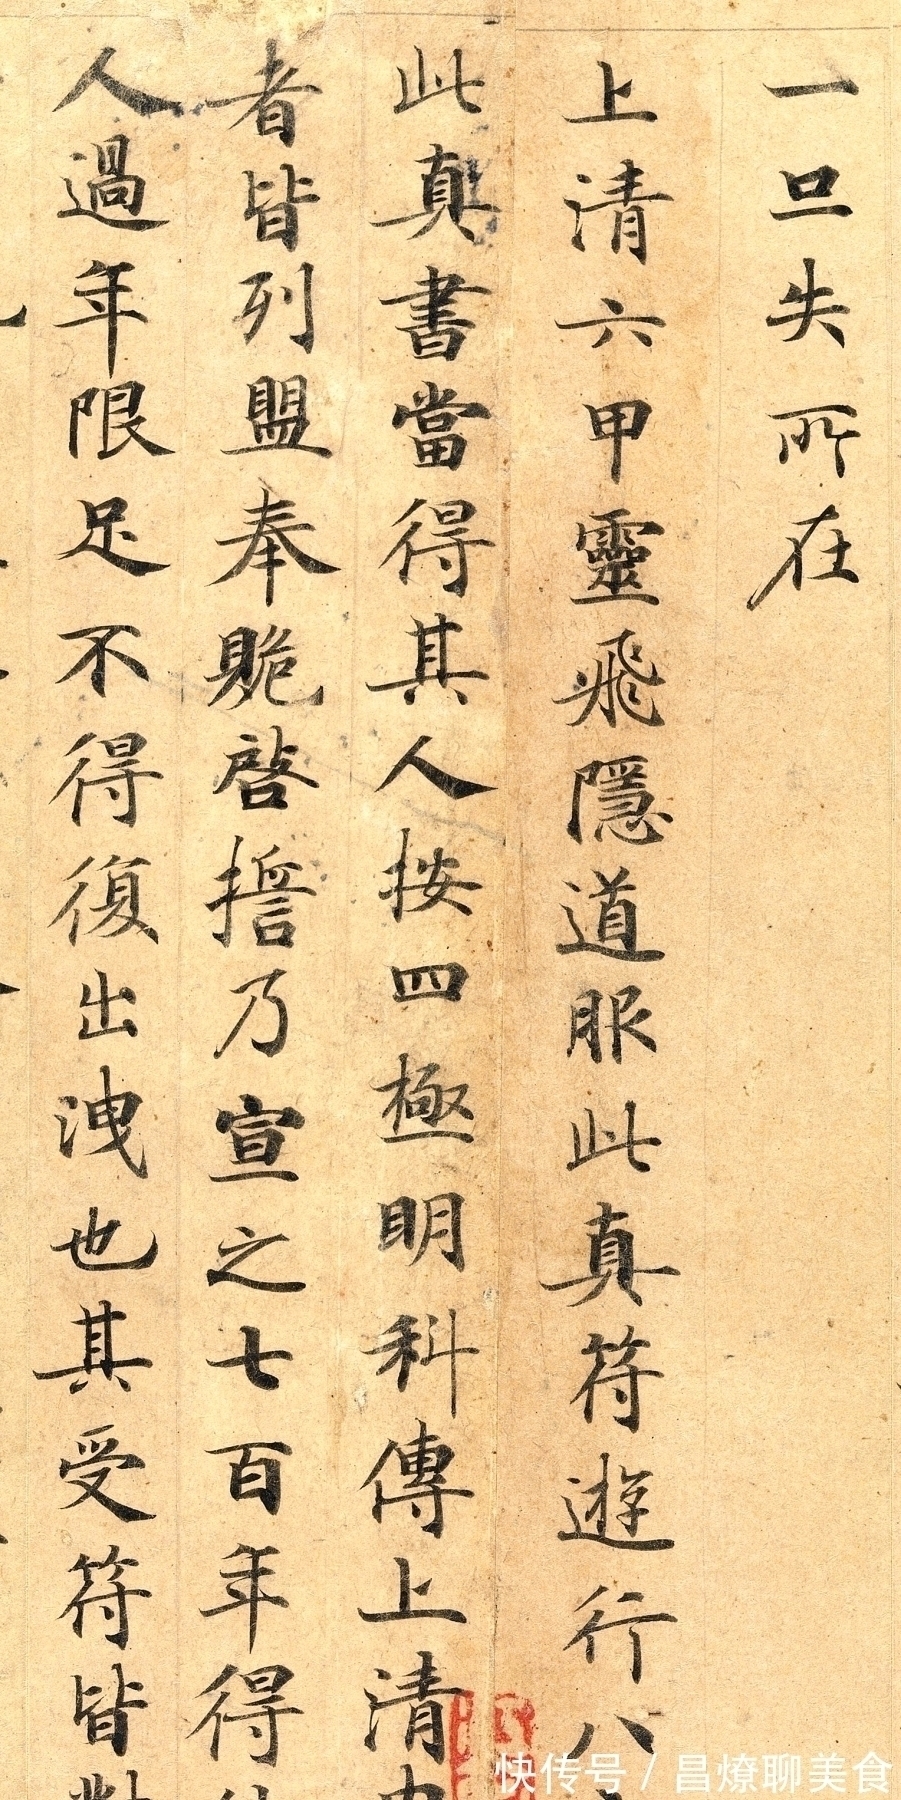 一旦失所在
上清六甲靈飛隱道服此真符遊行八
此真書當得其人按四極明科傳上清
者皆列盟奉贍啓誓乃宣之七百年得
人過年限足不得復出洩也其受符皆對
快传号 / 昌燎聊美食